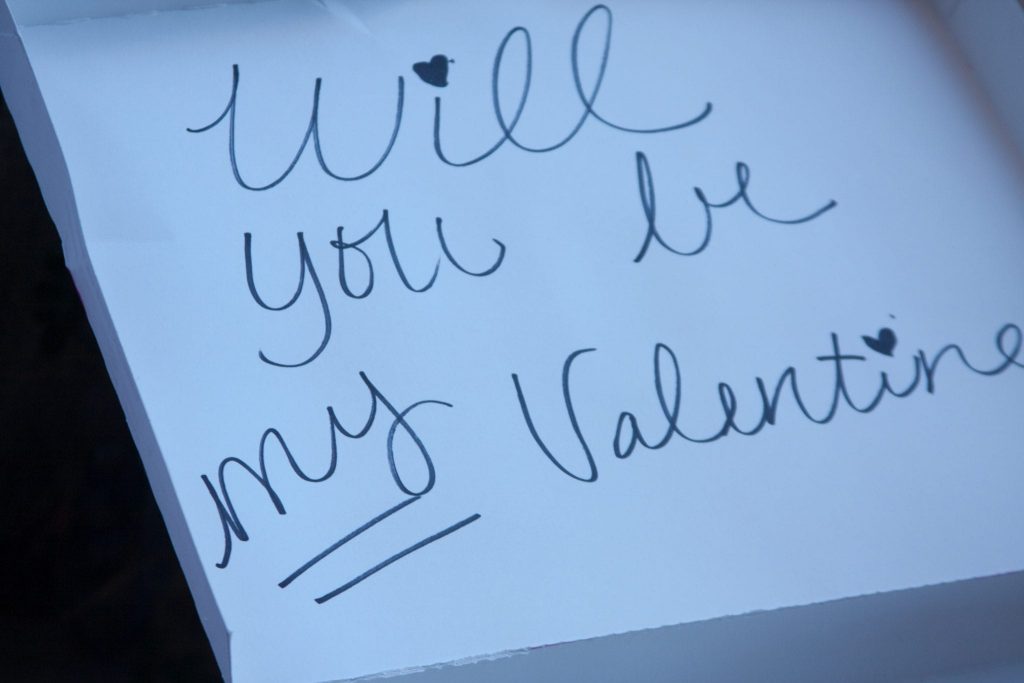 Will
you be
my Valentine